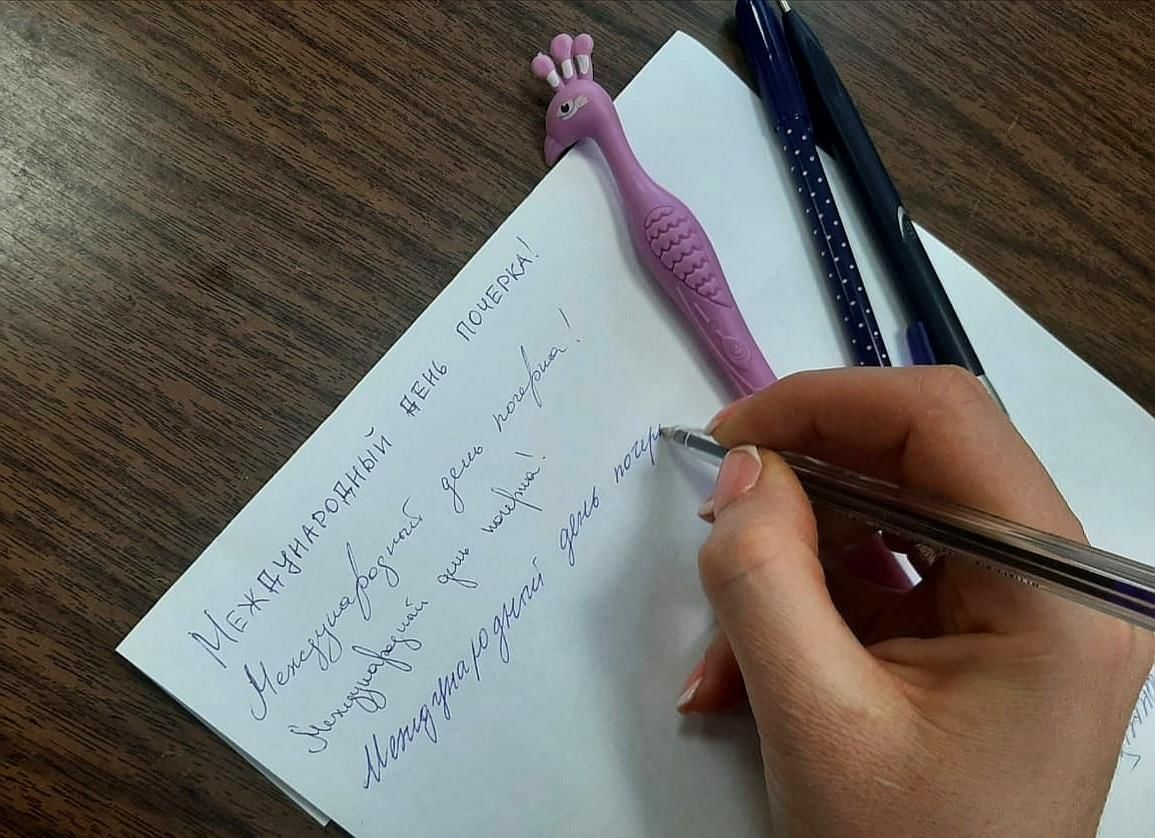 МЕЖДУНАРОДНЫЙ ДЕНЬ ПОЧЕРКА!
Международный день почерка!
Международный день почерка!
Международный день почер